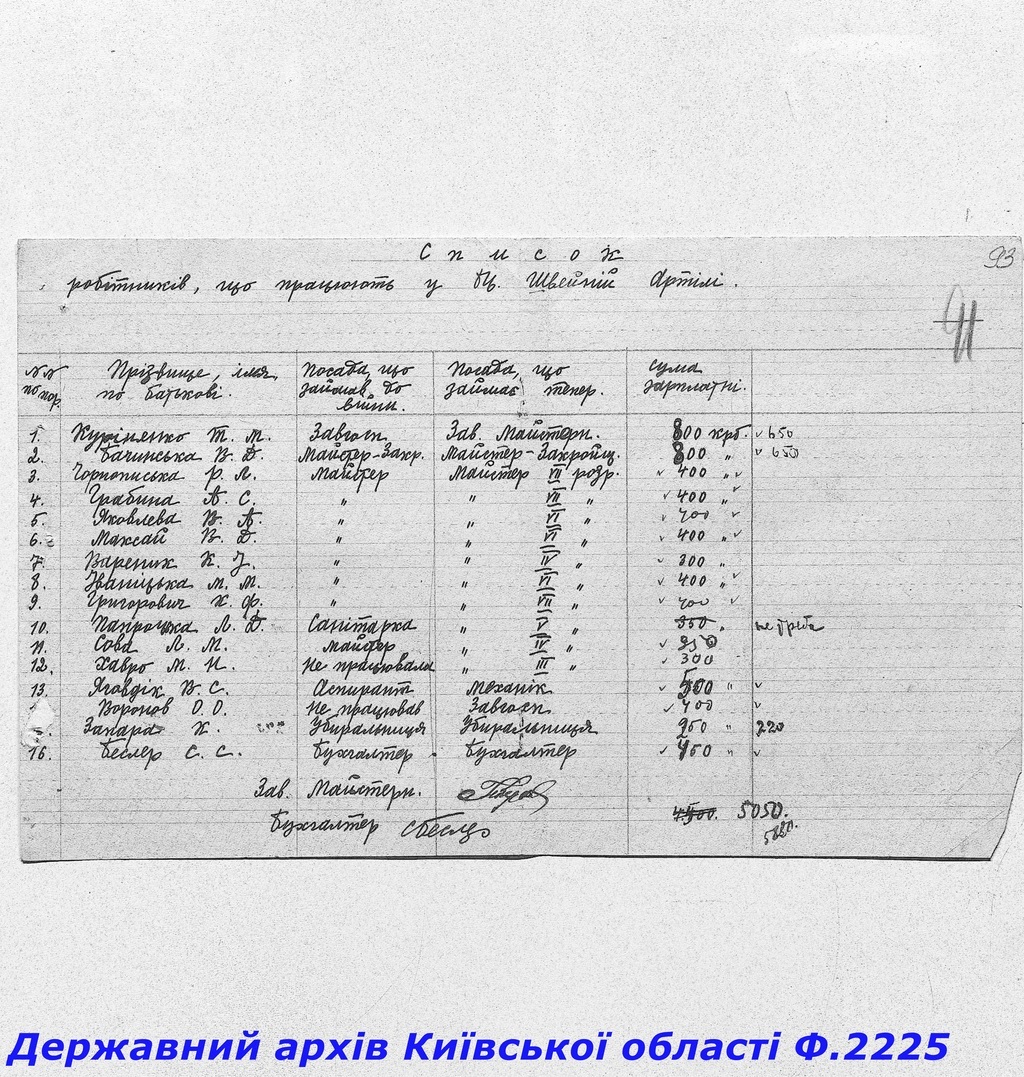 93
Список
робітників, що працюють у Шт. Швейній Артілі.
91
№№ по пор.
Прізвище, імя, по батькові.
Посада, що займав до війни.
Посада, що займає тепер.
сума зарплатні.
1. Журіненко Т. М. Завгосп Зав. Майстерн. 800 крб. v 650
2. Бачинська В. Д. Майстер-Закр. Майстер-Закройщ. 800 " v 650
3. Чорнописька Р. Л. Майстер Майстер VII розр. v 400 " v
4. Грабина А. С. " " VII " v 400 " v
5. Яковлева В. А. " " VI " v 400 " v
6. Максай В. Д. " " VI " v 400 " v
7. Вареник К. І. " " IV " v 300 "
8. Іваніцька М. М. " " VI " v 400 " v
9. Григорович Х. Ф. " " VII " v 400 v
10. Папроцка Л. Д. Санітарка " V " 350 " не треба
11. Сова Л. М. Майстер " IV " v 350
12. Хавро М. Н. Не працювала " III " v 300
13. Яговдік В. С. Аспирант Механік v 500 " v
Воронов О. О. Не працював Завгосп v 400 v
Захара Х. Убиральниця Убиральниця 250 " 220
16. Беслер С. С. Бухгалтер Бухгалтер v 450 " v
Зав. Майстерн.
Бухгалтер СБеслер
4400. 5050.
Державний архів Київської області Ф.2225